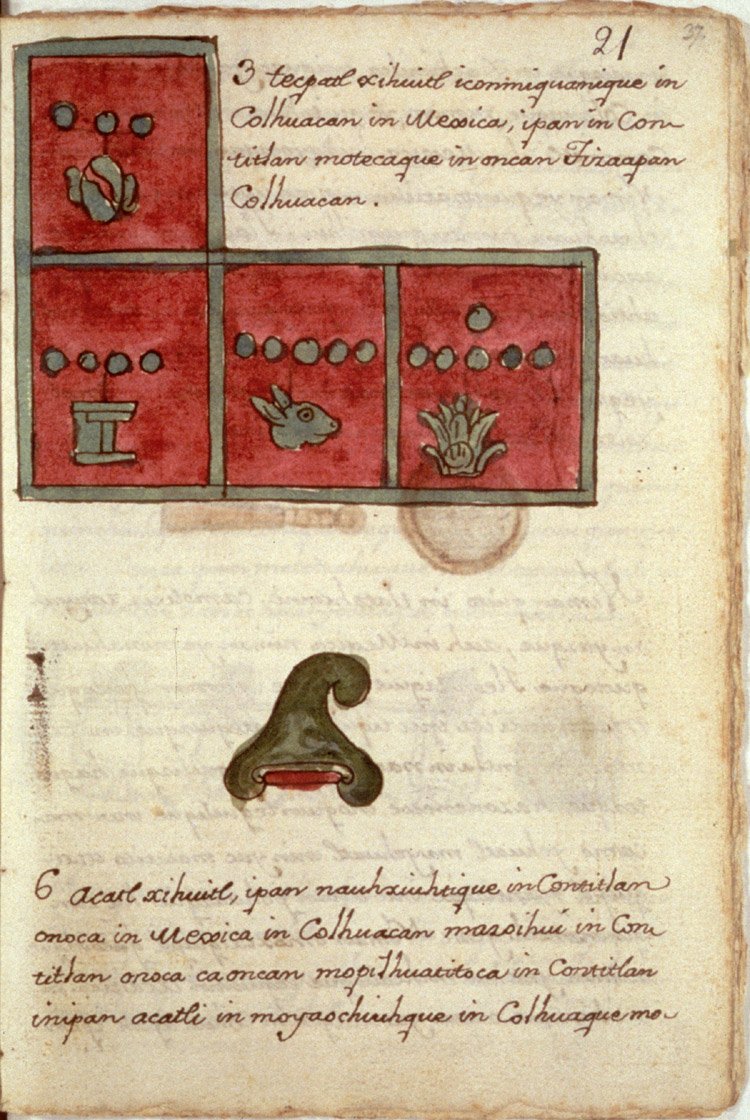 21
37
3 tecpatl xihuitl iconmiquanique in
Colhuacan in Mexica, ipan in Con-
titlan motecaque in oncan Tizaapan
Colhuacan.
6 Acatl xihuitl, ipan nauhxiuhtique in Contitlan
onoca in Mexica in Colhuacan mazoihui in Con-
titlan onoca caoncan mopilhuatitoca in Contitlan
inipan acatli in moyaochiuhque in Colhuaque mo-